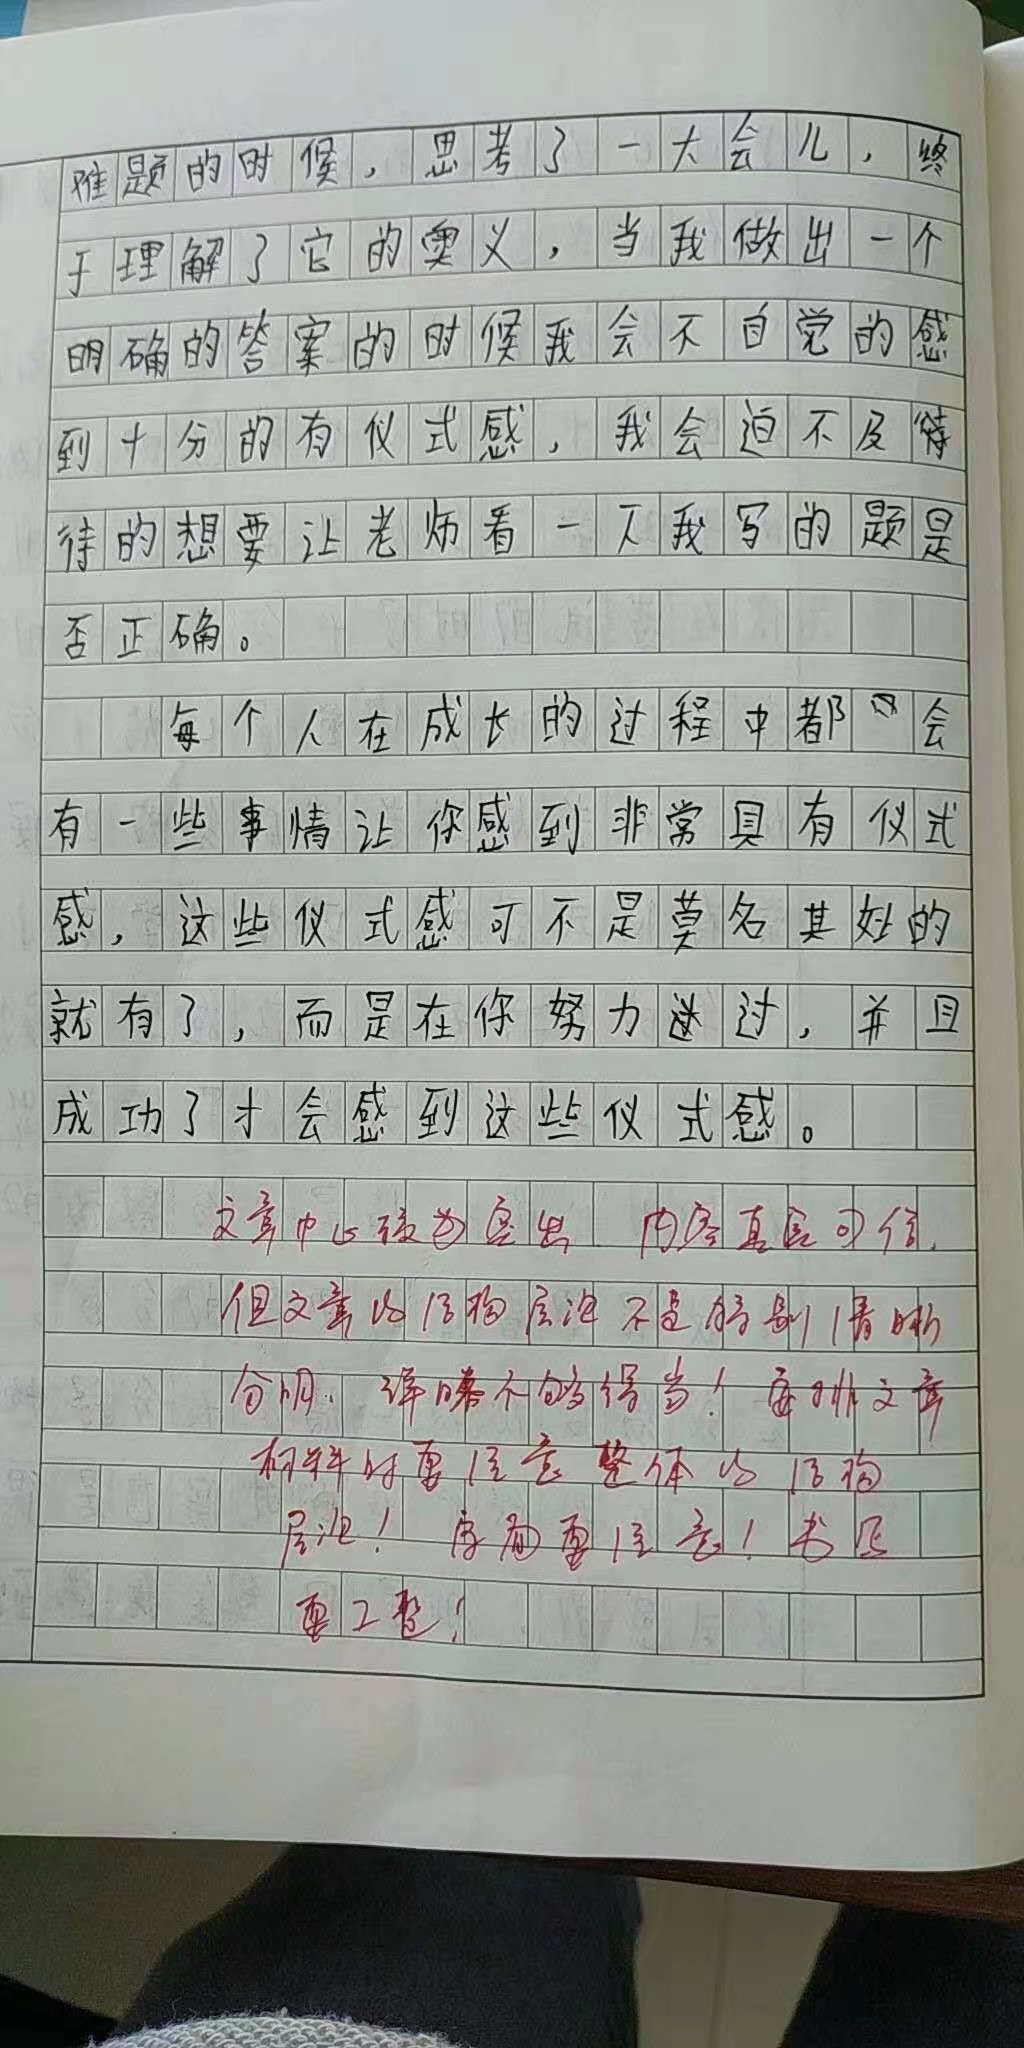 难题的时候，思考了一大会儿，终
于理解了它的奥义，当我做出一个
明确的答案的时候我会不自觉的感
到十分的有仪式感，我会迫不及待
待的想要让老师看一下我写的题是
否正确。
每个人在成长的过程中都会
有一些事情让你感到非常具有仪式
感，这些仪式感可不是莫名其妙的
就有了，而是在你努力过，并且
成功了才会感到这些仪式感。
文章中心较为突出 内容真实可信，
但文章的结构层次不是特别清晰
分明，详略不够得当！安排文章
材料时要注意整体的结构
层次！ 要注意！书写
要工整！